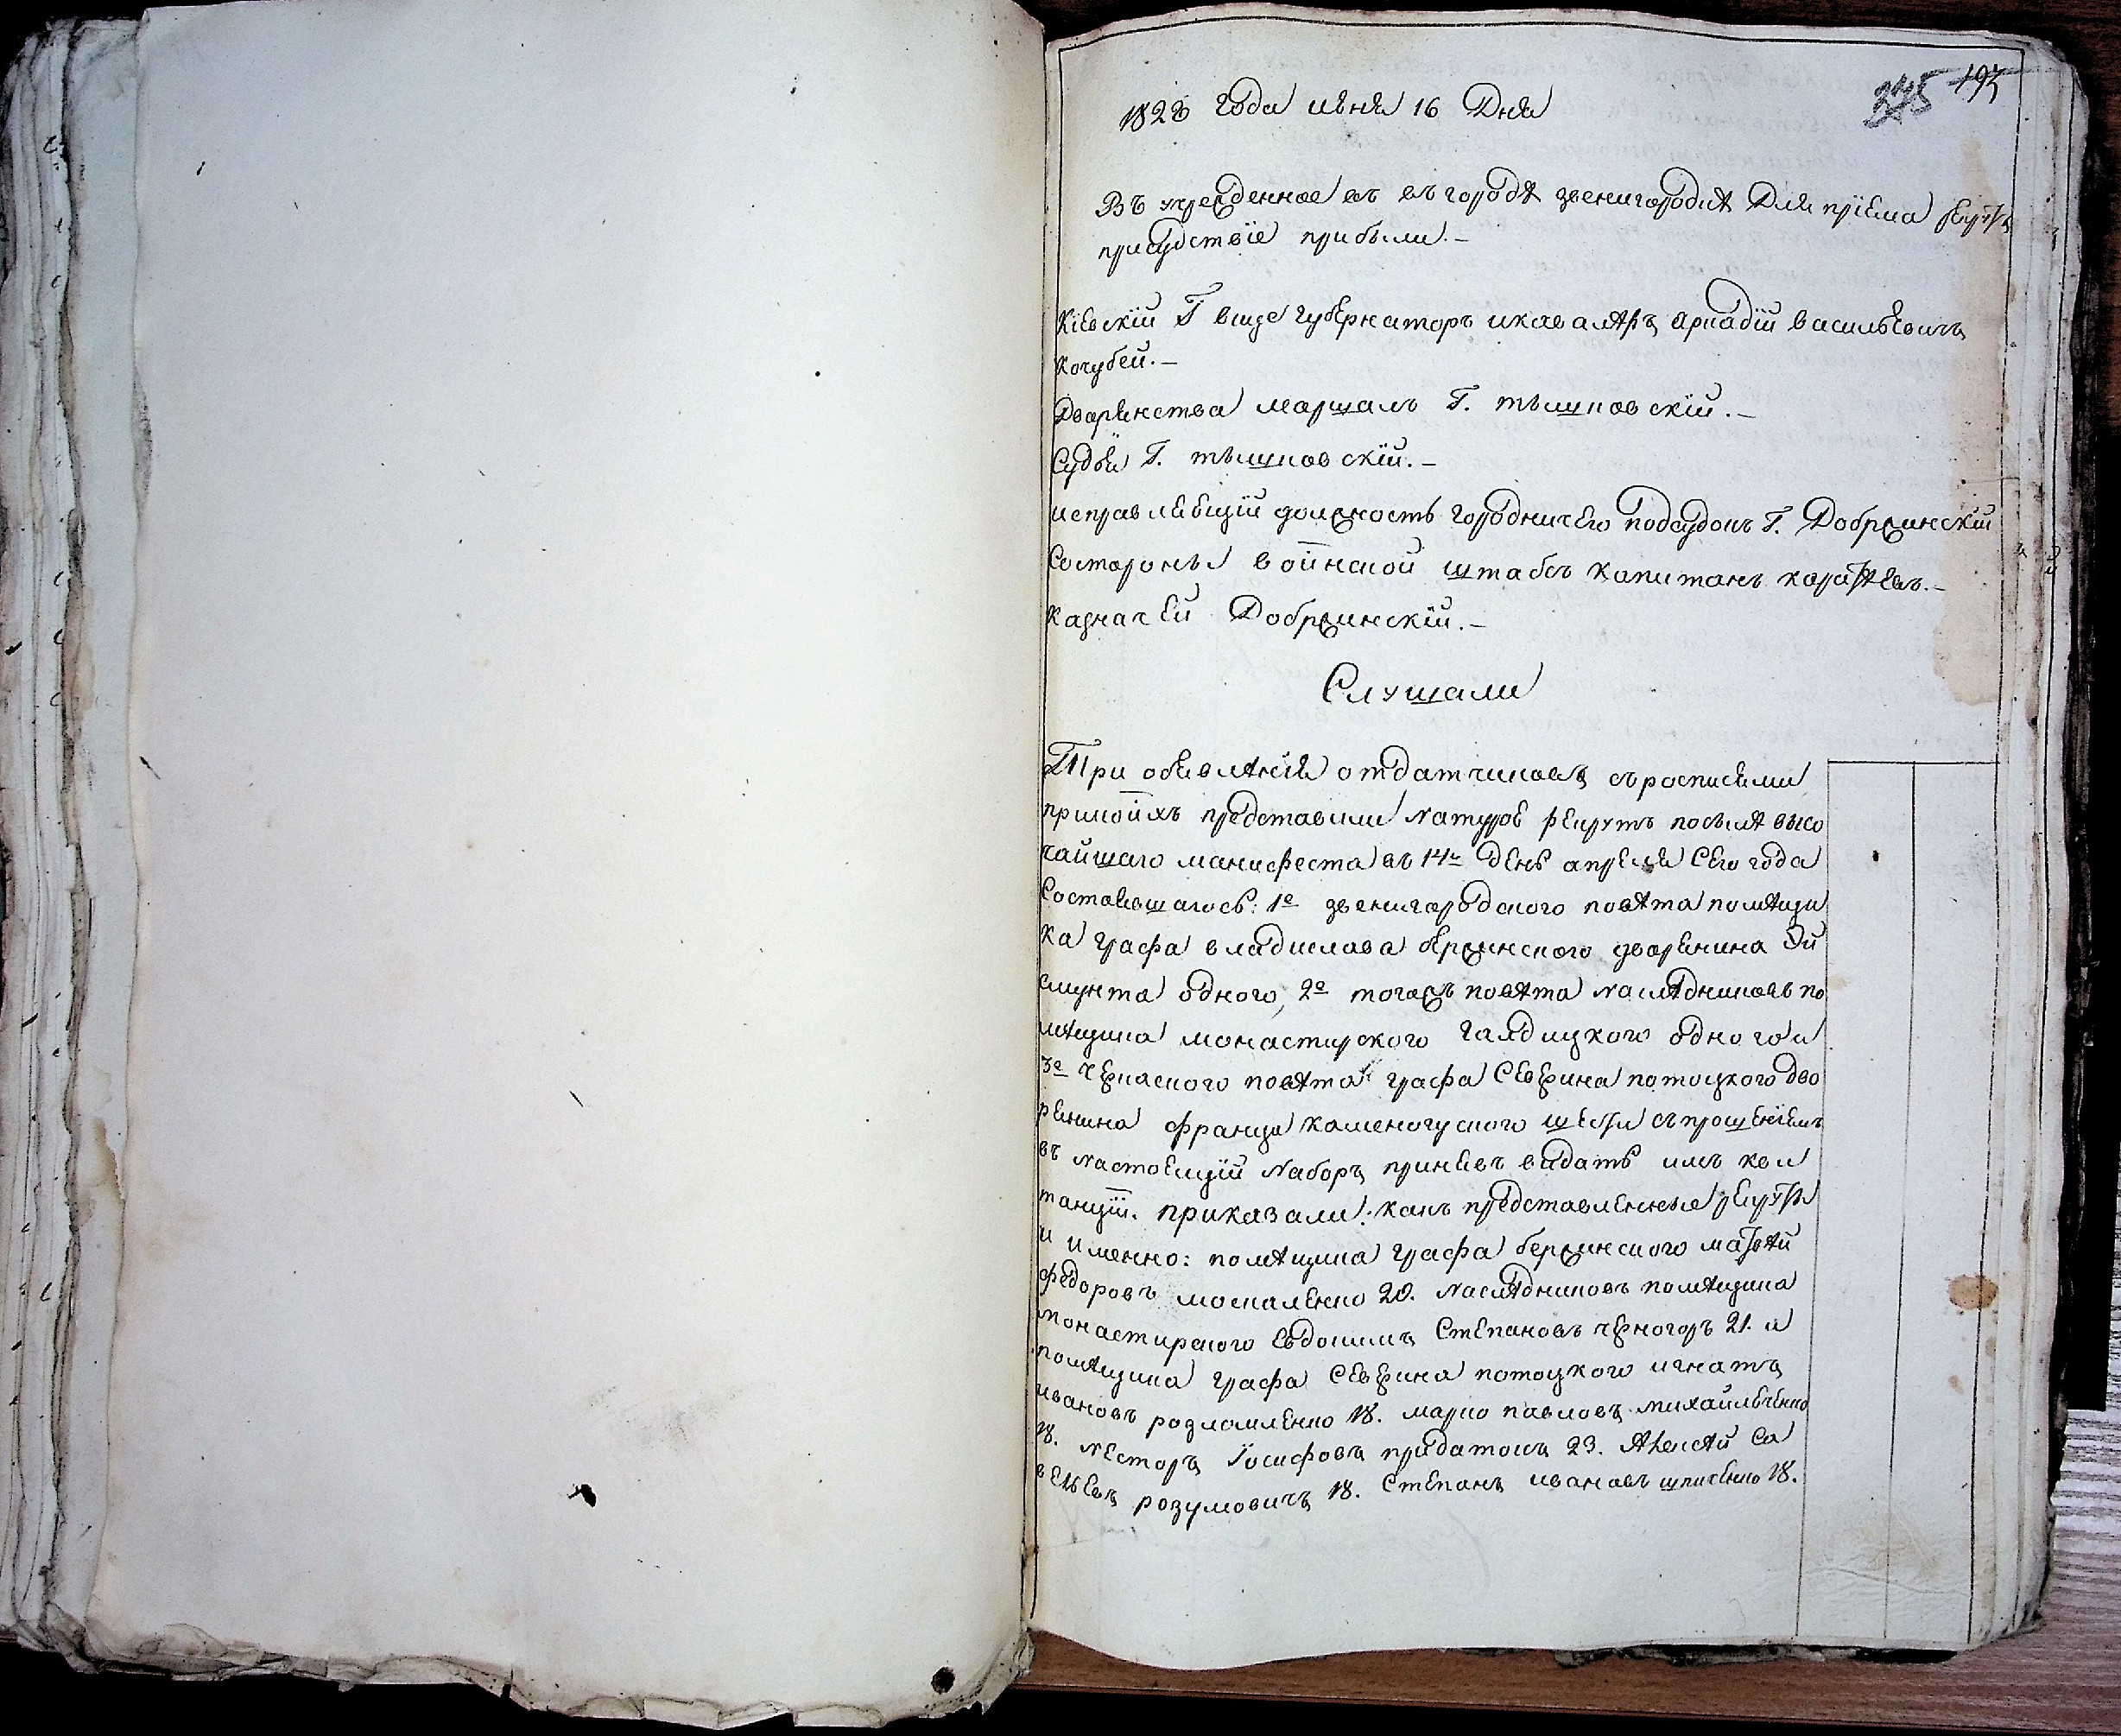 195
1828 года июня 16 Дня
Въ учрежденное въ въ городѣ звенигородкѣ Для пріема рекрутъ
присудствіе прибыли.-
Кіевскій Г вице губернаторъ и кавалѣръ аркадій васильевичъ
кочубей.-
Дворянства маршалъ Г. тышковскій.-
Судья Г. тышковскій.-
исправляющій должность городничего подсудокъ Г. Добржинскій
Состороны воинской штабсъ капитанъ
казначей Добржинскій.-
Слушали
При обявлѣнія отдатчиковъ съросписями
прикоихъ представили натурой рекрутъ посылѣ высо
чайшаго манифеста въ 14й день апреля сего года
состоявшагось: 1е звенигородского повѣта помѣщи
ка графа владислава бержинского дворянина
одного, 2е тогожъ повѣта наслѣдниковъ по
мѣщика монастирского одного и
3е черкаского повѣта графа Северина потоцкого дво
рянина франца шести съпрошеніемъ
въ настоящій наборъ принявъ видать имъ кви
танціи. приказали: какъ представленные рекруты
и именно: помѣщика графа бержинского матвѣй
федоровъ москаленко 20. наслѣдниковъ помѣщика
монастирского Евдокимъ Степановъ черногоръ 21. и
помѣщика графа Северина потоцкого игнатъ
ивановъ розламленко 18. марко павловъ михайличенко
18. несторъ Іосифовъ придатокъ 23. Алексѣй Са
вельевъ розумовичъ 18. Степанъ ивановъ шпиченко 18.